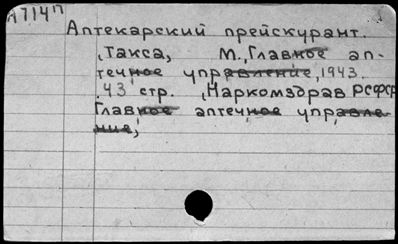 А714п
Аптекарский прейскурант.
, Такса, М., Главное ап-
течное управление, 1943.
. 43 стр. , Наркомздрав РСФСР
Главное аптечное управле-
ние,